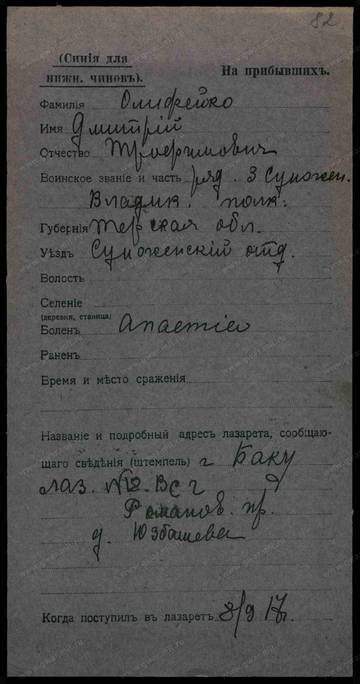 82
(Синія для
нижн. чиновъ).
На прибывшихъ.
Фамилія Олифейко
Имя Дмитрій
Отчество Трофимович
Воинское званіе и часть ряд. 3 Сунжен.
Владик. полк.
Губернія Терская обл.
Уѣздъ Сунженскій отд.
Волость
Селеніе
(деревня, станица)
Боленъ
Раненъ
Время и мѣсто сраженія
Названіе и подробный адресъ лазарета, сообщаю-
щаго свѣдѣнія (штемпель) г Баку
лаз. №12 ВСГ
Романов. пр.
д. Юзбашева
Когда поступилъ въ лазаретъ 8/9 17г.